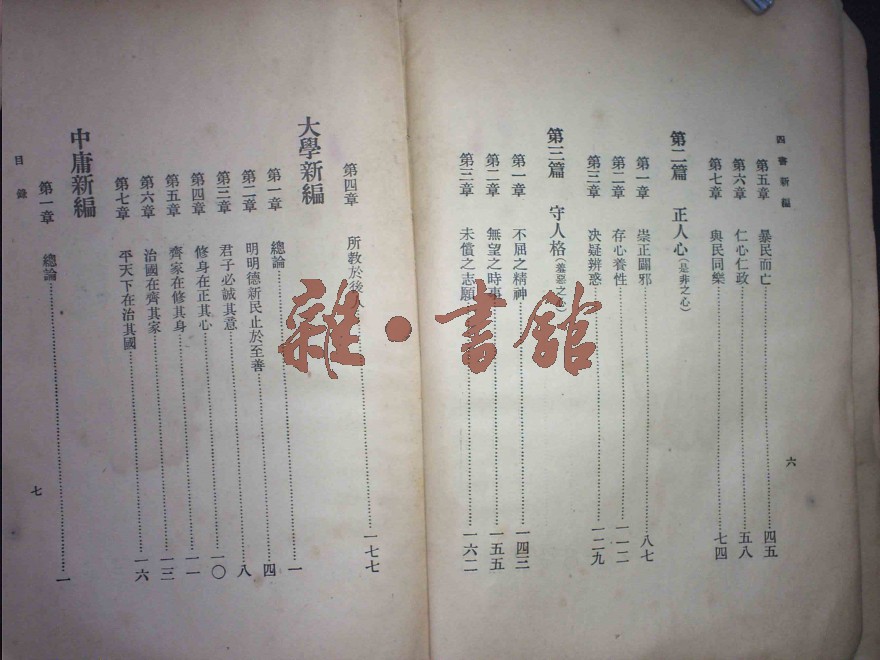 四書新編
第五章 暴民而亡 四五
第六章 仁心仁政 五八
第七章 與民同樂 七四
第二篇 正人心(是非之心)
第一章 崇正闢邪 八七
第二章 存心養性 一一二
第三章 決疑辨惑 一二九
第三篇 守人格(羞惡之心)
第一章 不屈之精神 一四三
第二章 無望之時事 一五五
第三章 未償之志願 一六二
六
第四章 所教於後人 一七七
大學新編
第一章 總論 一
第二章 明明德新民止於至善 四
第三章 君子必誠其意 八
第四章 修身在正其心 一〇
第五章 齊家在修其身 一一
第六章 治國在齊其家 一三
第七章 平天下在治其國 一六
中庸新編
第一章 總論 一
目錄
七
雜·書館